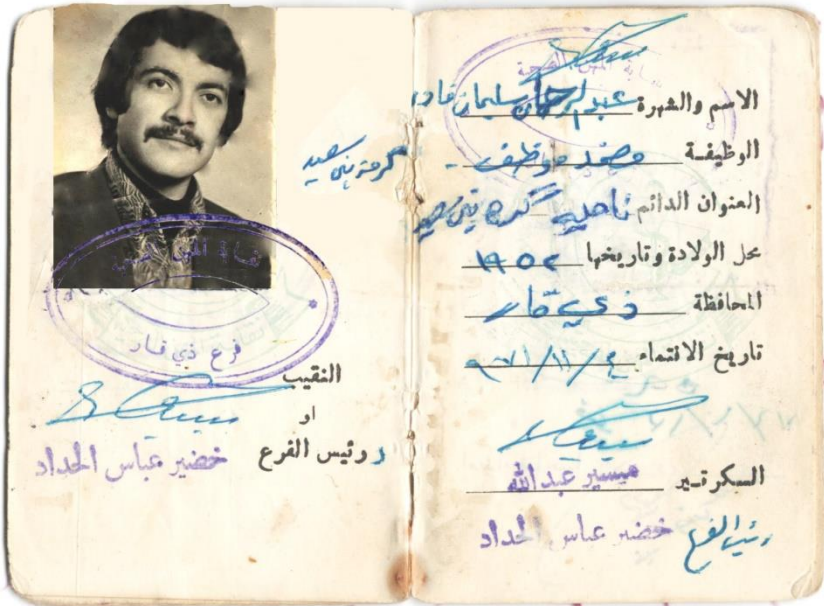 الاسم والشهرة عبدالرحمان سليمان
الوظيفة مضمد موظف
العنوان الدائم ناحية گرمة بني سعيد
محل الولادة وتاريخها ١٩٥٢
المحافظة ذي قار
تاريخ الانتماء ٩٧١/١١/٤
السكرتير ميسير عبدالله
رئيس الفرع خضير عباس الحداد
گرمة بني سعيد
نقابة المهن الصحية
فرع ذي قار
النقيب
او
رئيس الفرع خضير عباس الحداد